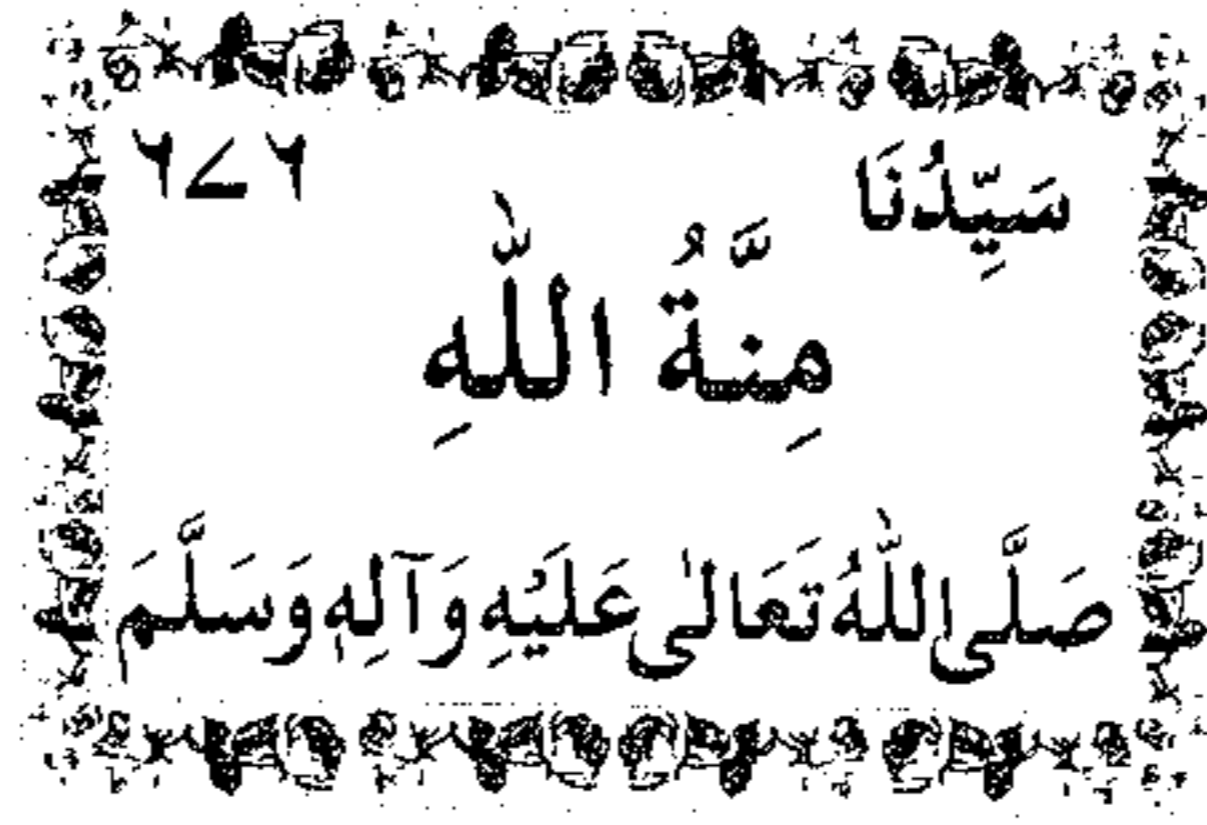 سَيِّدُنَا ٦٧٦
مِنَّةُ اللّٰهِ
صَلَّى اللّٰهُ تَعَالىٰ عَلَيْهِ وَآلِهٖ وَسَلَّمَ